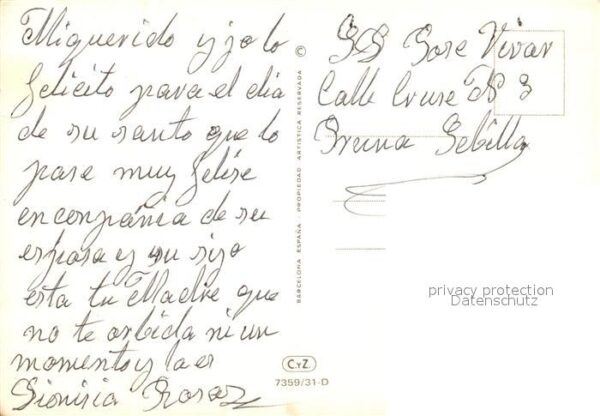 Mi querido yjo lo
felicito para el dia
de su santo que lo
pase muy felise
en conpañia de su
esposa y su ijo
esta tu Madre que
no te orbida ni un
momento y la es
Dionisia Rosa
©
BARCELONA ESPAÑA - PROPIEDAD ARTISTICA RESERVADA
CyZ
7359/31-D
Jose Vivar
Calle Cruse Nº 3
Bruna Sebilla
privacy protection
Datenschutz